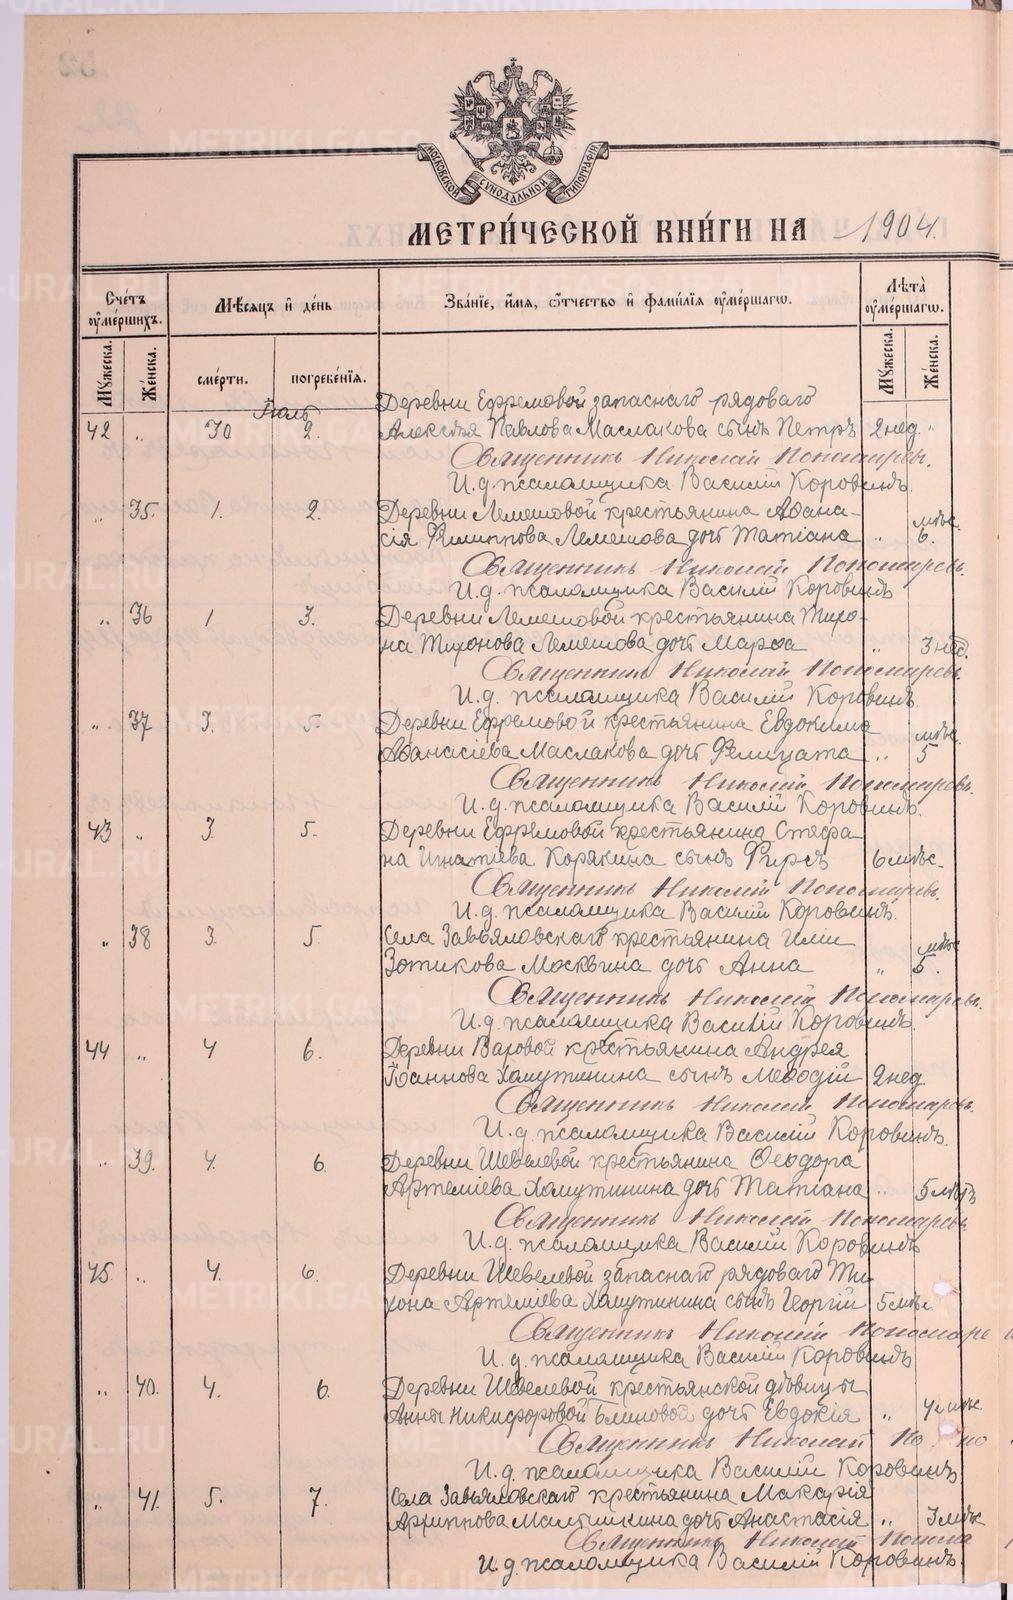 МОСКОВСКОЙ СѴНОДАЛЬНОЙ ТИПОГРАФІИ
МЕТРИ́ЧЕСКОЙ КНИ́ГИ НА 1904.
Сче́тъ оуме́ршихъ.
Мѣ́сяцъ и де́нь
Зва́нїе, и́мя, ѻ҆́тчество и фами́лїя оуме́ршагѡ.
Лѣта̀ оуме́ршагѡ.
Му́жеска.
Же́нска.
сме́рти.
погребе́нїя.
Му́жеска.
Же́нска.
Іюль
Деревни Ефремовой запаснаго рядоваго
42 " 30 2. Алексѣя Павлова Маслакова сынъ Петръ 2 нед. "
Священникъ Николай Пономаревъ.
И. д. псаломщика Василій Коровинъ.
" 35. 1. 2. Деревни Лемешовой крестьянина Аѳана-
сія Филиппова Лемешова дочь Татіана " мѣс. 6.
Священникъ Николай Пономаревъ.
И. д. псаломщика Василій Коровинъ
" 36 1 3. Деревни Лемешовой крестьянина Тихо-
на Тихонова Лемешова дочь Марѳа " 3 нед.
Священникъ Николай Пономаревъ.
И. д. псаломщика Василій Коровинъ.
" 37 3. 5. Деревни Ефремовой крестьянина Евдокима
Аѳанасіева Маслакова дочь Фелицата " мѣс. 5
Священникъ Николай Пономаревъ.
И. д. псаломщика Василій Коровинъ.
43 " 3. 5. Деревни Ефремовой крестьянина Стефа-
на Игнатіева Корякина сынъ Фирсъ 6 мѣс.
Священникъ Николай Пономаревъ.
И. д. псаломщика Василій Коровинъ.
" 38 3. 5. Села Завьяловскаго крестьянина Иліи
Зотикова Москвина дочь Анна " мѣс 5.
Священникъ Николай Пономаревъ.
И. д. псаломщика Василій Коровинъ.
44 " 4 6. Деревни Варовой крестьянина Андрея
Іоаннова Хомутинина сынъ Меѳодій 2 нед
Священникъ Николай Пономаревъ.
И. д. псаломщика Василій Коровинъ.
" 39. 4. 6. Деревни Шевелевой крестьянина Ѳеодора
Артеміева Хомутинина дочь Татіана " 5 лѣтъ
Священникъ Николай Пономаревъ
И. д. псаломщика Василій Коровинъ
45. " 4. 6. Деревни Шевелевой запаснаго рядоваго Ти-
хона Артеміева Хомутинина сынъ Георгій 5 мѣс.
Священникъ Николай Пономаре
И. д. псаломщика Василій Коровинъ
" 40. 4. 6. Деревни Шевелевой крестьянской дѣвицы
Анны Никифоровой Блиновой дочь Евдокія " мѣс
Священникъ Николай По но
И. д. псаломщика Василій Коровинъ
" 41. 5. 7. Села Завьяловскаго крестьянина Макарія
Архиппова Малышкина дочь Анастасія " 3 мѣс
Священникъ Николай Понома
И. д. псаломщика Василій Коровинъ.
METRIKI.GASO-URAL.RU